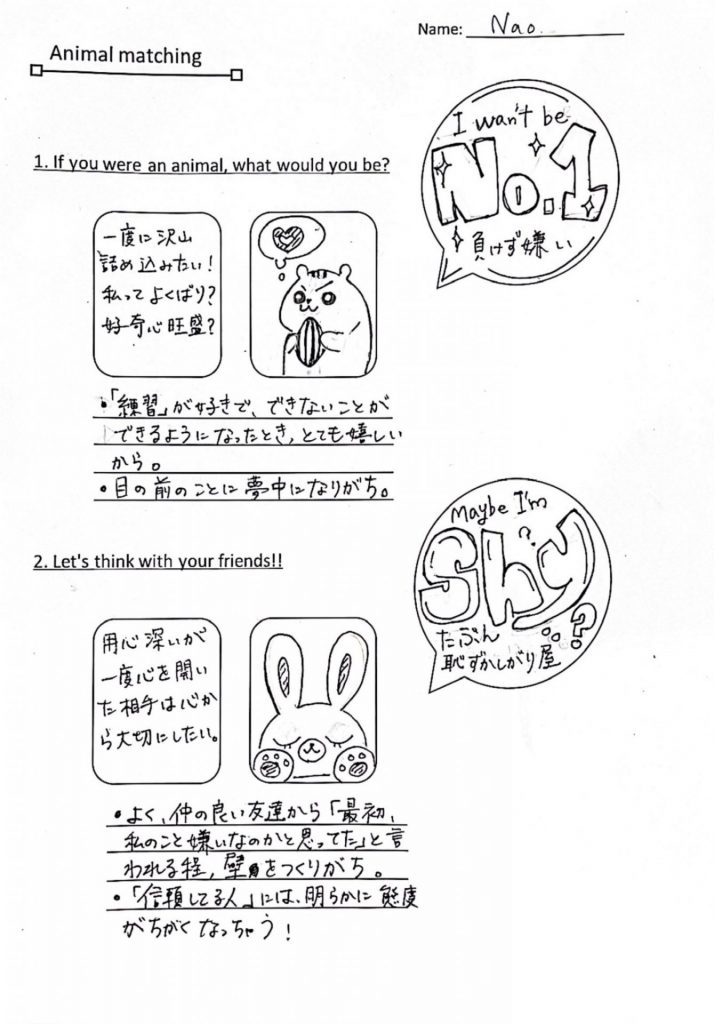 Name: Nao.
Animal matching
I wan't be
No.1
負けず嫌い
1. If you were an animal, what would you be?
一度に沢山
詰め込みたい!
私ってよくばり?
好奇心旺盛?
・「練習」が好きで、できないことが
できるようになったとき,とても嬉しい
から。
・目の前のことに夢中になりがち。
Maybe I'm
Shy
?
たぶん
恥ずかしがり屋
?
2. Let's think with your friends!!
用心深いが
一度心を開い
た相手は心か
ら大切にしたい。
・よく、仲の良い友達から「最初、
私のこと嫌いなのかと思ってた」と言
われる程,壁をつくりがち。
・「信頼してる人」には、明らかに態度
がちがくなっちゃう!